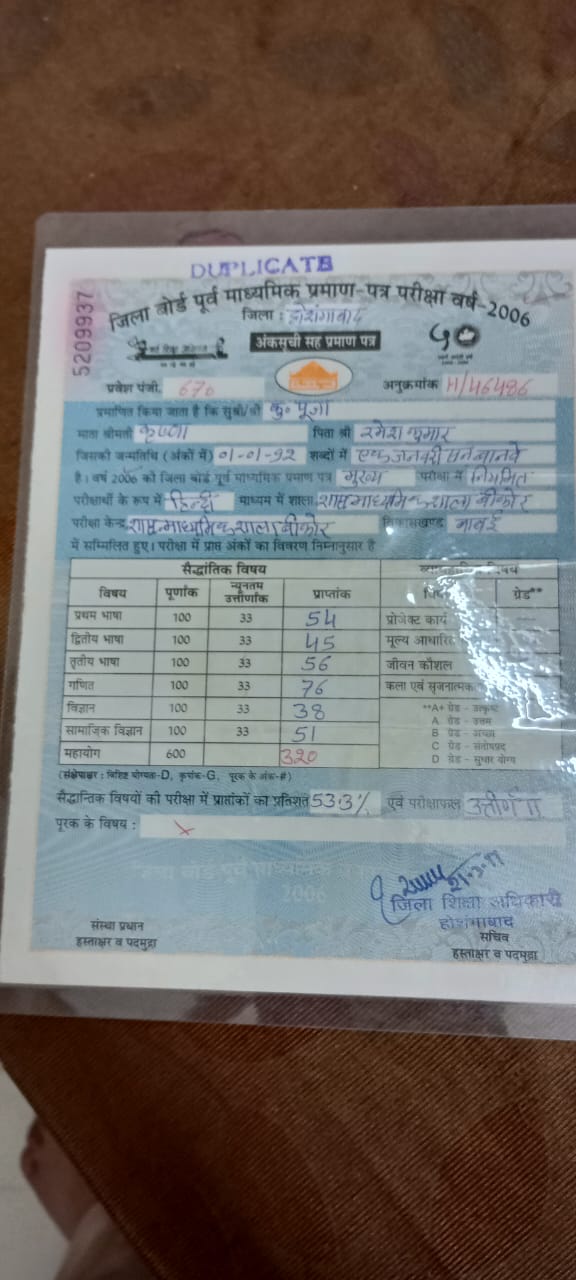 DUPLICATE
5209937
जिला बोर्ड पूर्व माध्यमिक प्रमाण-पत्र परीक्षा वर्ष-2006
जिला : होशंगाबाद
अंकसूची सह प्रमाण पत्र
प्रवेश पंजी. 670 अनुक्रमांक H/46486
प्रमाणित किया जाता है कि सुश्री/श्री कु० पूजा
माता श्रीमती कृष्णा पिता श्री रमेश कुमार
जिसकी जन्मतिथि (अंकों में) 01-01-92 शब्दों में एक जनवरी सन बानवे
है। वर्ष 2006 की जिला बोर्ड पूर्व माध्यमिक प्रमाण पत्र मुख्य परीक्षा में नियमित
परीक्षार्थी के रूप में हिन्दी माध्यम में शाला शास माध्यमिक शाला बीकोर
परीक्षा केन्द्र शास माध्यमिक शाला बीकोर विकासखण्ड बाबई
में सम्मिलित हुए। परीक्षा में प्राप्त अंकों का विवरण निम्नानुसार है
सैद्धांतिक विषय
विषय पूर्णांक न्यूनतम उत्तीर्णांक प्राप्तांक ग्रेड**
प्रथम भाषा 100 33 54 प्रोजेक्ट कार्य
द्वितीय भाषा 100 33 45 मूल्य आधारित
तृतीय भाषा 100 33 56 जीवन कौशल
गणित 100 33 76 कला एवं सृजनात्मक
विज्ञान 100 33 38 **A+ ग्रेड - उत्कृष्ट
A ग्रेड - उत्तम
सामाजिक विज्ञान 100 33 51 B ग्रेड - अच्छा
C ग्रेड - संतोषप्रद
महायोग 600 320 D ग्रेड - सुधार योग्य
(संक्षेपाक्षर : विशिष्ट योग्यता-D, कृपांक-G, पूरक के अंक-#)
सैद्धान्तिक विषयों की परीक्षा में प्राप्तांकों का प्रतिशत 53.3% एवं परीक्षाफल उत्तीर्ण
पूरक के विषय : X
2006
जिला शिक्षा अधिकारी
होशंगाबाद
संस्था प्रधान सचिव
हस्ताक्षर व पदमुद्रा हस्ताक्षर व पदमुद्रा